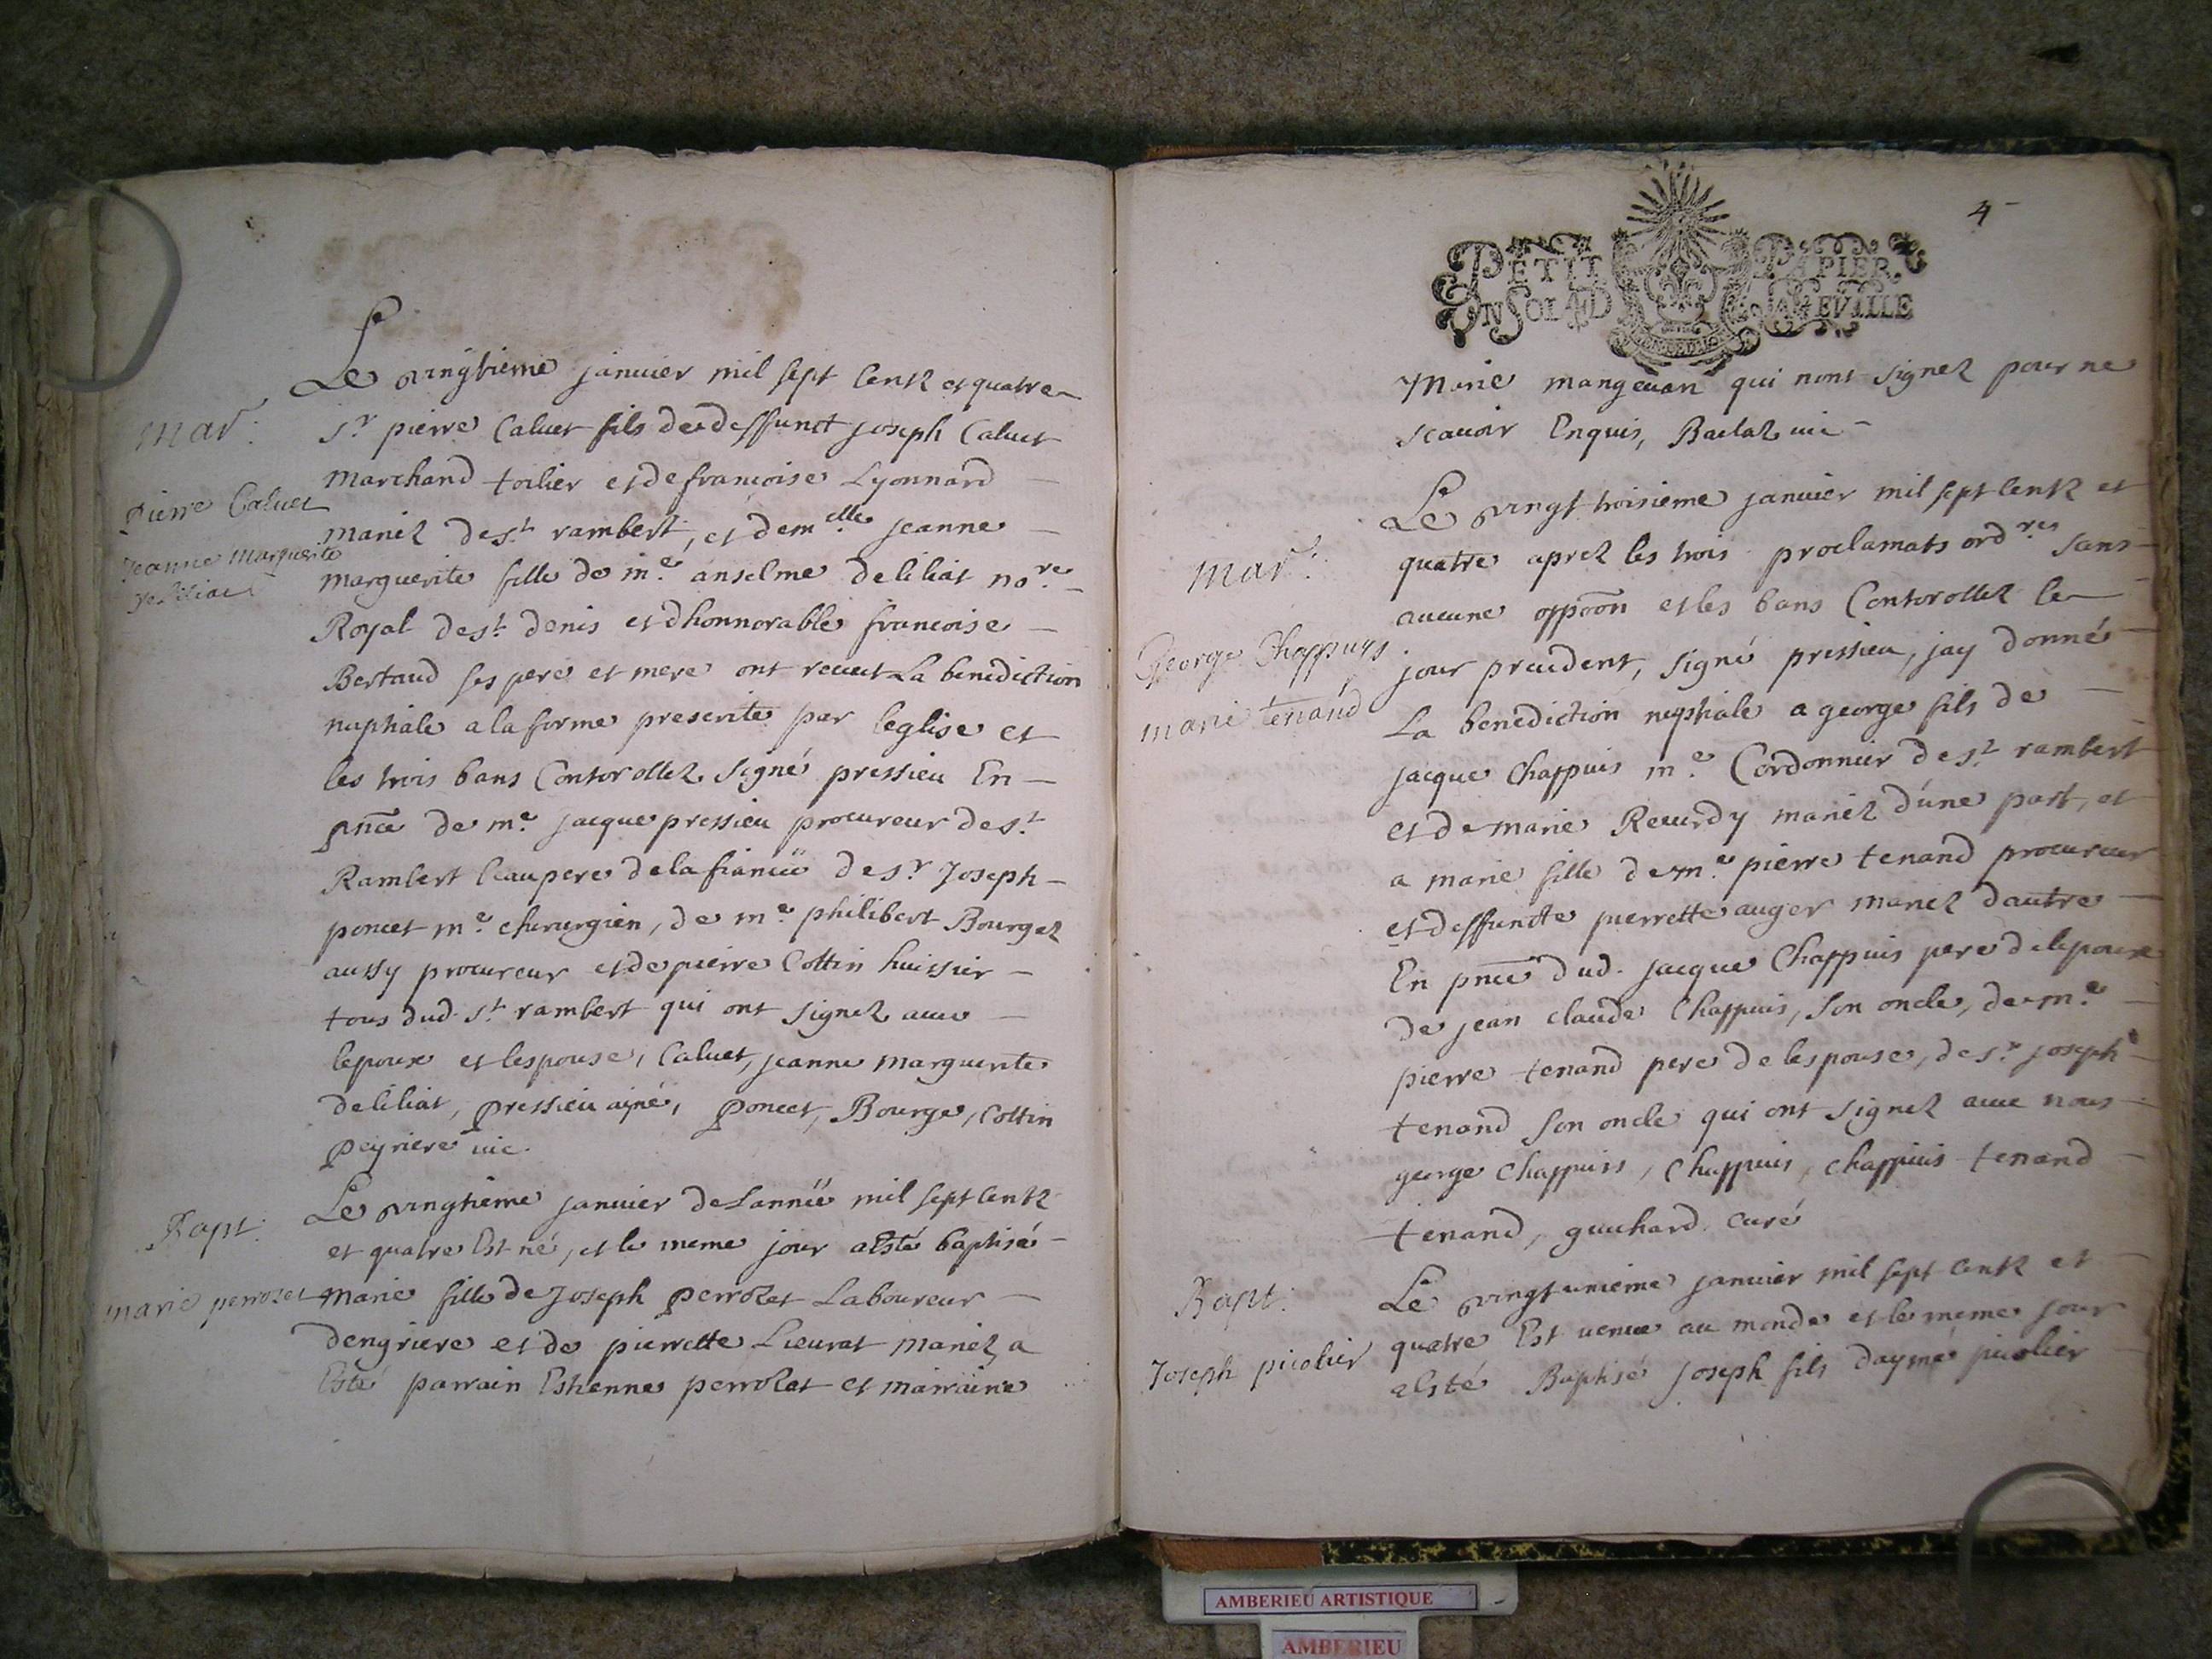 Le vingtieme janvier mil sept centz et quatre
mar.
Sr pierre Caluet fils de deffunct joseph Caluet
marchand toilier et de francoise Lyonnard
Pierre Caluet
mariez de st rambert, et demelle jeanne
Jeanne Marguerite
deliliat
marguerite fille de me anselme deliliat nore
Royal de st denis et dhonnorable francoise
Bertaud ses pere et mere ont receut La benediction
nuptiale a la forme prescrite par leglise et
les trois bans Contorollez signé pressieu En
pnce de me jacque pressieu procureur de st
Rambert beaupere de la fiancée de sr Joseph
poncet me chirurgien, de me philibert Bourgez
aussy procureur et de pierre Cottin huissier
tous dud. st rambert qui ont signez auec
lepoux et lespouse, Caluet, jeanne marguerite
deliliat, pressieu ainé, poncet, Bourge, Cottin
peyriere uic.
Le vingtieme janvier de Lannée mil sept centz
Bapt.
et quatre Est né, et le meme jour a esté baptisé
marie perrozet
marie fille de Joseph perrozet Laboureur
dengriere et de pierrette Lieurat mariez, a
Esté parrain Estienne perrozet et mairaine
4
PETIT PAPIER
UN SOL 4 D LA FEUILLE
Marie mangeuan qui nont signez pour ne
scauoir Enquis, uic
Le vingt troisieme janvier mil sept centz et
mar.
quatre aprez les trois proclamats ordres sans
aucune oppoon et les bans Contorollez le
George Chappuys
jour precedent, signé pressieu, jay donné
marie tenand
La benediction nuptiale a george fils de
jacque Chappuis me Cordonnier de st rambert
et de marie Reuerdy mariez d'une part, et
a marie fille de me pierre tenand procureur
et deffuncte pierrette auger mariez dautre
En pnce dud. jacque Chappuis pere de lepoux
de jean claude Chappuis, son oncle, de me
pierre tenand pere de lespouse, de sr joseph
tenand son oncle qui ont signez auec nous
george Chappuis, Chappuis, chappuis tenand
tenand, guichard curé
Le vingt unieme janvier mil sept centz et
Bapt.
quatre Est venue au monde et le meme jour
Joseph picolier
a esté Baptisé joseph fils daymé picolier
AMBERIEU ARTISTIQUE
AMBERIEU